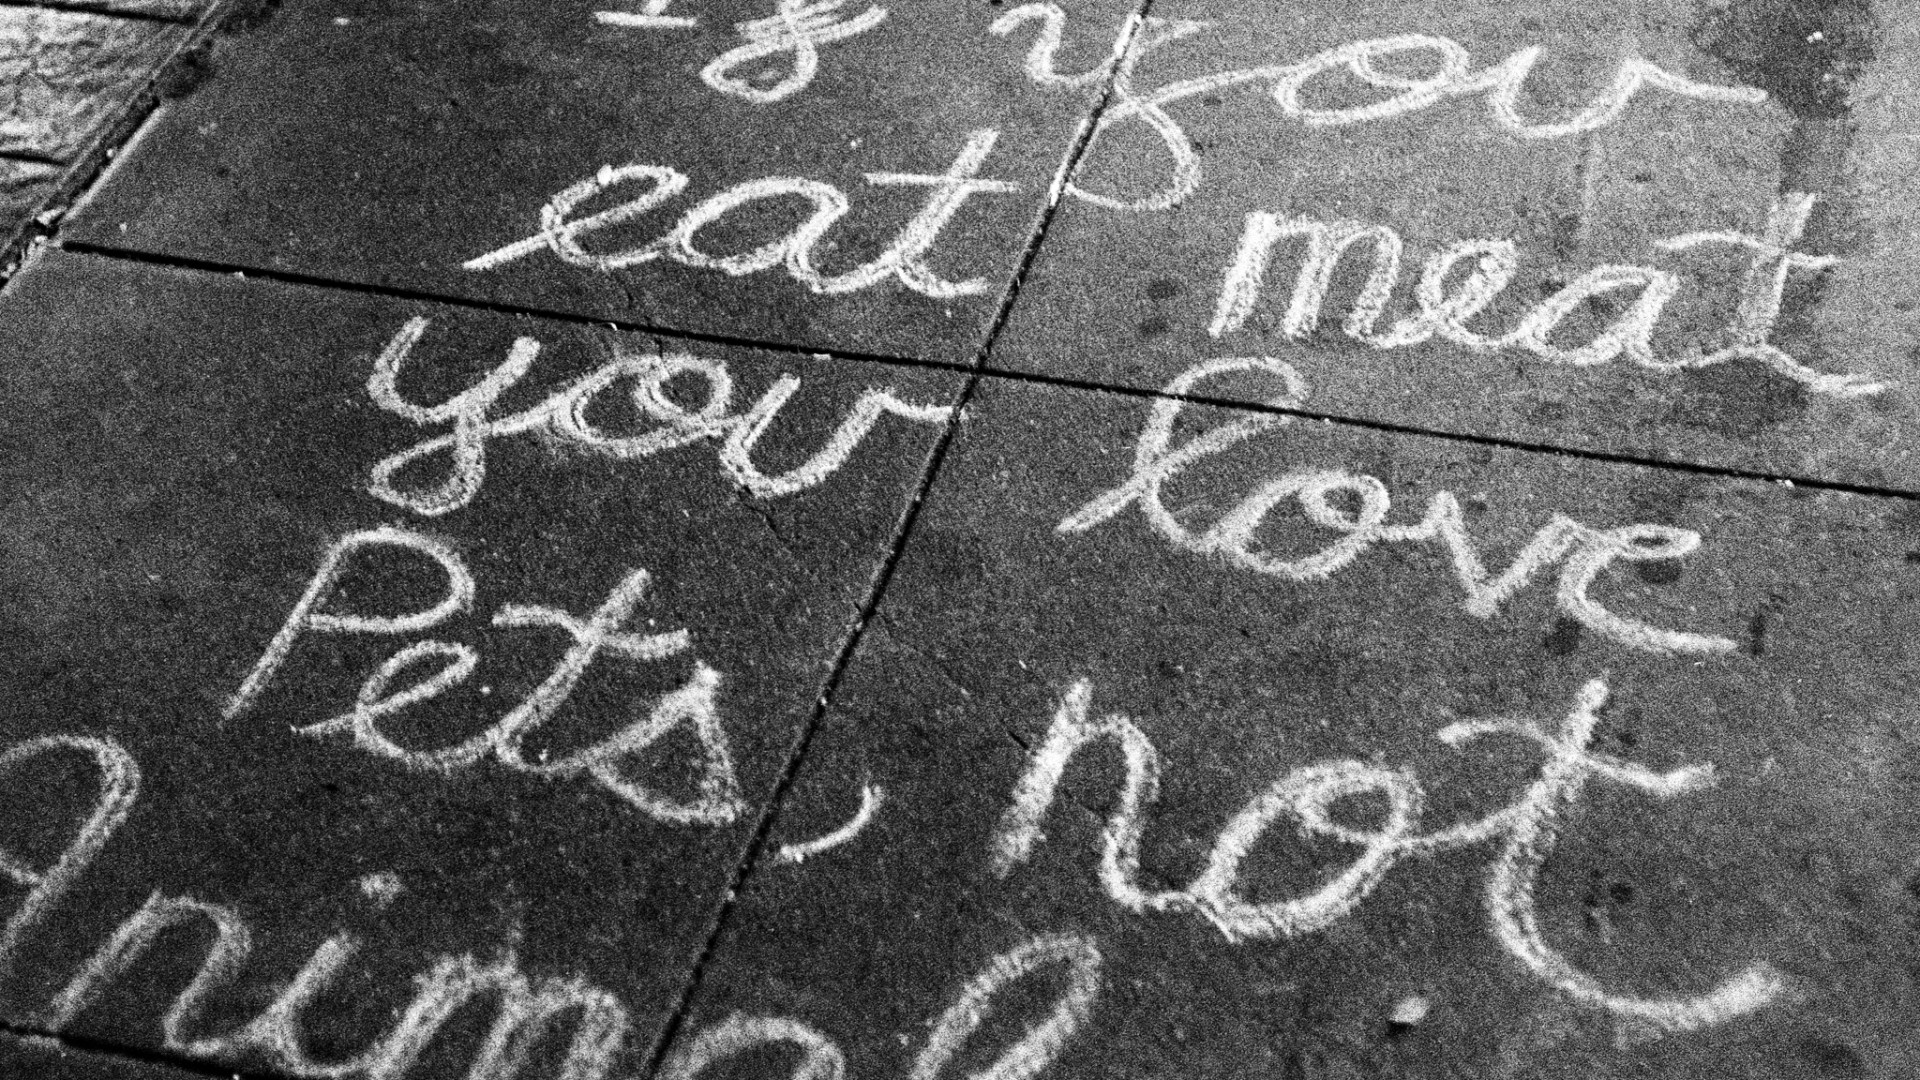 If you
eat meat
you love
Pets, not